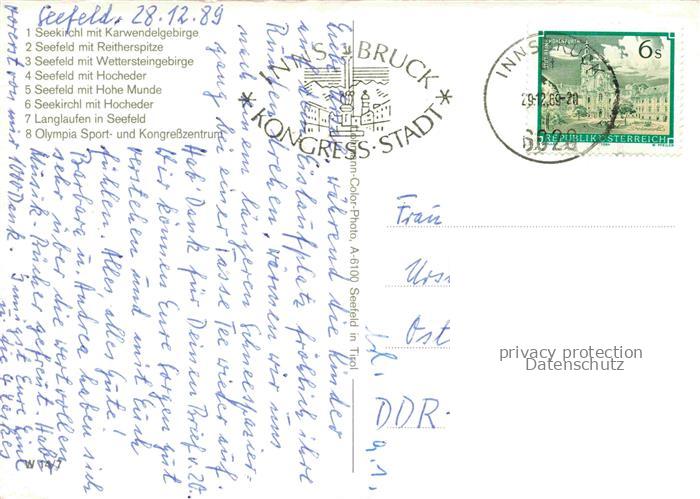 Seefeld, 28.12.89
1 Seekirchl mit Karwendelgebirge
2 Seefeld mit Reitherspitze
3 Seefeld mit Wettersteingebirge
4 Seefeld mit Hocheder
5 Seefeld mit Hohe Munde
6 Seekirchl mit Hocheder
7 Langlaufen in Seefeld
8 Olympia Sport- und Kongreßzentrum
INNSBRUCK
* KONGRESS-STADT *
INNSBRUCK
29.12.89-20
6020
6 s
REPUBLIK ÖSTERREICH
während die Kinder
Eislaufplatz fröhlich ihre
Runden drehen, wärmen wir uns
nach einem längeren Schneespazier-
gang bei einer Tasse Tee wieder auf.
Hab' Dank für Deinen Brief v. 20.
Wir können Eure Sorgen gut
verstehen und mit Euch
fühlen. Alles, alles Gute!
Barbara u. Andrea haben sich
sehr über die wertvollen
Musik-Bücher gefreut. Habt
vorerst von mir 1000 Dank.
-Color-Photo, A-6100 Seefeld in Tirol
Frau
Urs
Ost
DDR-
9.1.
W 14/7
privacy protection
Datenschutz